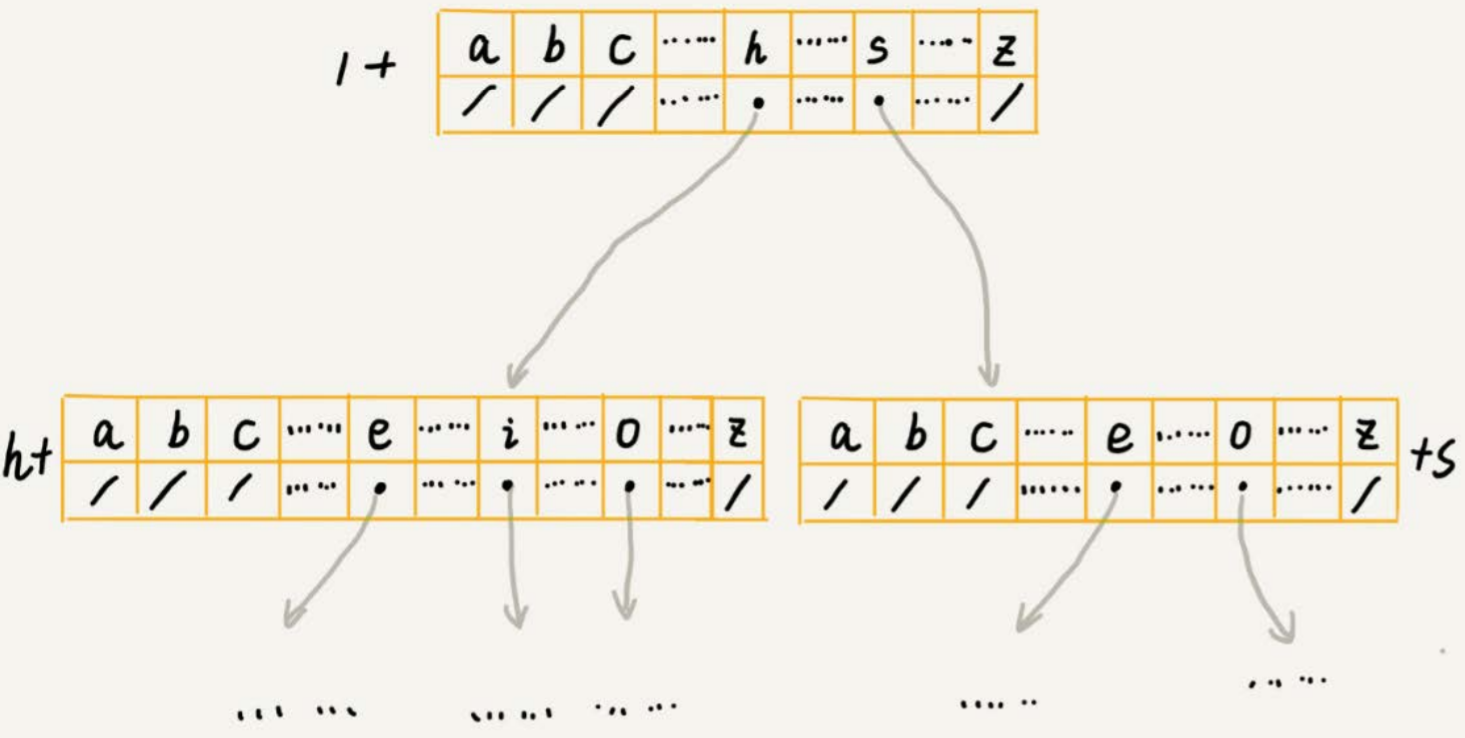 / +
a b c ...... h ...... s ...... z
/ / / ...... • ...... • ...... /
h+ a b c ...... e ...... i ...... o ...... z
/ / / ...... • ...... • ...... • ...... /
a b c ...... e ...... o ...... z +s
/ / / ...... • ...... • ...... /
...... ...... ...... ...... ......